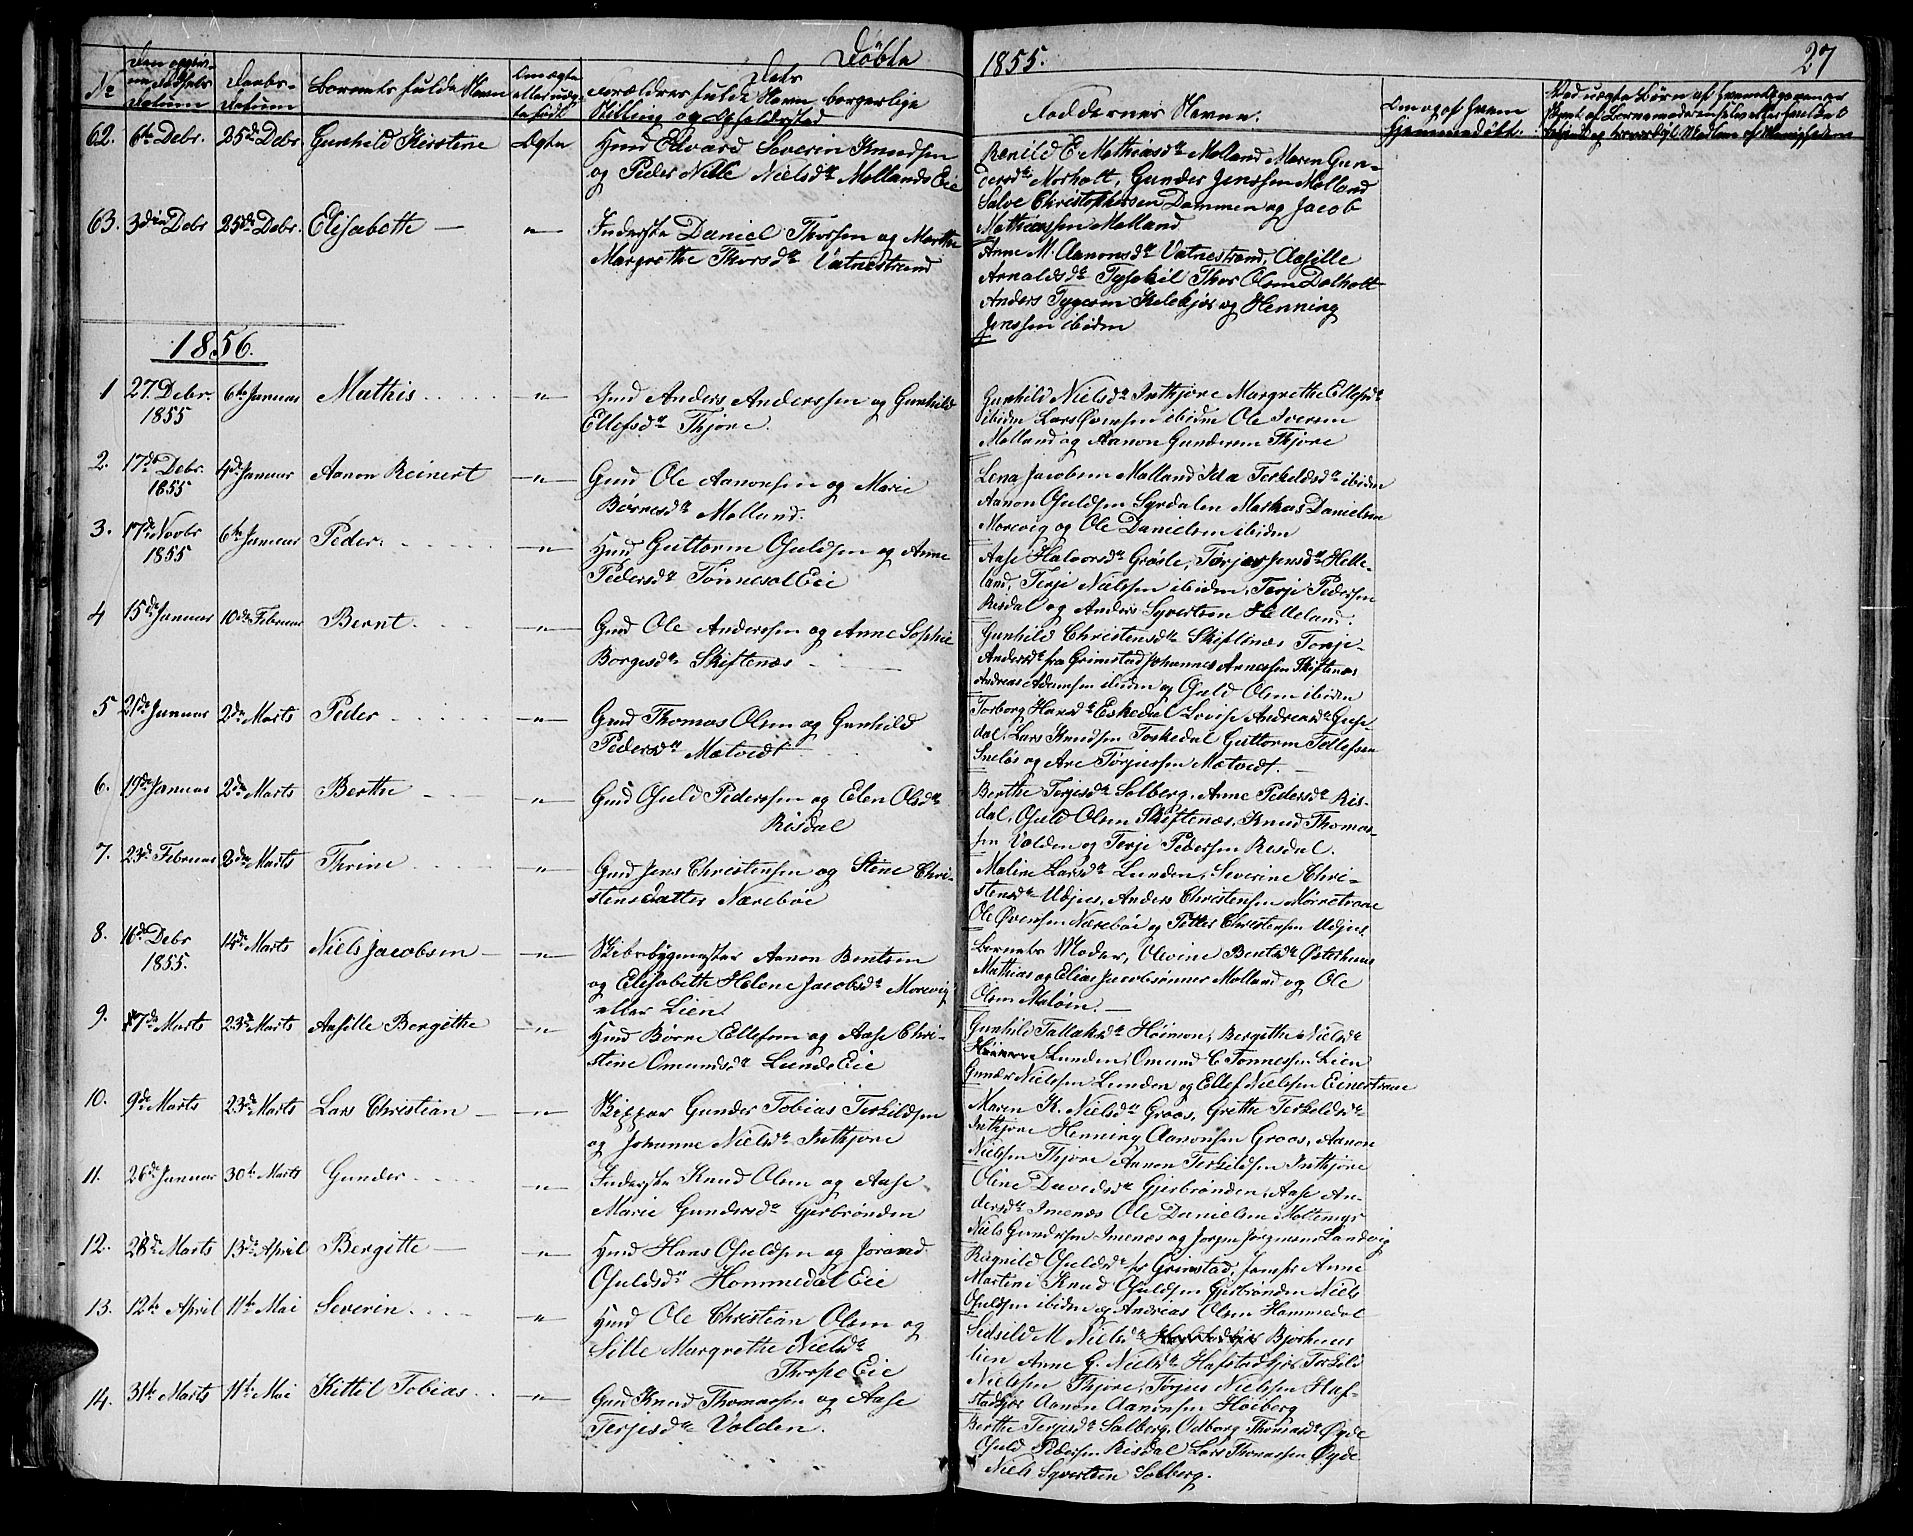 Døbte
1855.
27
No
Datum
Daabs-
Datum
Barnets fulde Navn
Forældres fulde Navn, borgerlige
Stilling og Opholdssted
Faddernes Navne.
Hjemmedøbt.
62. 6te Debr. 25de Debr. Gunhild Kirstene Ægte
Hmd Edvard Severin Knudsen
og Peder Nille Nielsdr Mollands Eie
Mathiasdr Molland Maren Gun-
dersdr Morholt, Gunder Jenssen Molland
Salve Christophersen Dammen og Jacob
Mathiassen Molland
63. 3die Debr 25de Debr. Elisabeth —
Inderste Daniel Thorsen og Marthe
Margrethe Thorsdr Vatnestrand
Anne M. Aanonsdr Vatnestrand, Aasille
Arnoldsdr Thor Olsen Dalholt
Anders Tygesen Kalekjør og Henning
Jenssen ibiden
1856.
1 27. Debr. 1855 6te Januar Mathis
Gmd Anders Anderssen og Gunhild
Ellefsdr Thjøre.
Gunhild Nielsdr Inthjøre Margrethe Ellefsdr
ibiden Lars Øvensen ibiden Ole Iversen
Molland og Aanon Gundersen Thjøre
2. 17de Debr. 1855 4de Januar Aanon Reinert
Gmd Ole Aanonsen og Marie
Børresdr Molland.
Lena Jacobsen Molland Ida Terkeldsdr ibiden
Aanon Osuldsen Syrdalen Markus Danielsen
Morevig og Ole Danielsen ibiden
3. 17de Novbr 1855 6te Januar Peder
Hmd Guttorm Osuldsen og Anne
Pedersdr Tønnesol Eie
Aase Halvorsdr Grøsle, Helle-
land, Terje Nielssen ibiden, Terje Pedersen
Risdal og Anders Syvertsen Helleland.
4 15de Januar 10de Februar Bernt
Gmd Ole Anderssen og Anne Sophie
Borgesdr Skiftenæs
Gunhild Christensdr Skiftenæs Tonje
Andersdr fra Grimstad Johannes Arnessen Skiftenæs
Andreas Adamsen ibiden og Osuld Olsen ibiden
5 21de Januar 2den Marts Peder
Gmd Thomas Olsen og Gunhild
Pedersdr Mætvedt
Torborg Hansdr Eskedal Lovise Andreasdr Guse-
dal, Lars Knudsen Toskedal Guttorm Tellefsen
Sneløs og Are Tørjussen Mætvedt.
6. 19de Januar 2den Marts Berthe
Gmd Osuld Pederssen og Elen Olsdr
Risdal
Berthe Terjesdr Solberg, Anne Pedersdr Ris-
dal, Osuld Olsen Skiftenæs, Knud Thomas-
sen Volden og Terje Pedersen Risdal.
7. 23de Februar 2den Marts Thrine
Gmd Jens Christensen og Stene Chri-
stensdatter Nærebøe
Maline Larsdr Lunden, Severine Chri-
stensdr Udjus, Anders Christensen
Ole Øvensen Nærebøe og Petter Christensen Udjus.
8. 16de Debr 1855. 14de Marts Niels Jacobsen
Skibsbygmester Aanon Bentsen
og Elisabeth Helene Jacobsdr Morevig
eller Lien.
Barnets Moder, Olevine Bentsdr Østerhuus
Mathias og Elias Jacobsønner Molland og Ole
Olsen Maløen.
9. 7de Marts 23de Marts Aasille Bergithe
Hmd Børre Ellefsen og Aase Chri-
stine Omundsdr Lunds Eie
Gunhild Tallaksdr Høimon, Bergithe Nielsdr
Lunden, Omund C. Tønnessen Lien
Gunder Nielssen Lunden og Ellef Nielssen
10. 9de Marts 23de Marts Lars Christian
Skipper Gunder Tobias Terkildsen
og Johanne Nielsdr Inthjøre
Maren K. Nielsdr Groos, Grethe Terkeldsdr
Inthjøre Henning Aanonsen Groos, Aanon
Nielsen Thjøre Aanon Terkildsen Inthjøre
11. 26de Januar 30te Marts Gunder
Inderste Knud Olsen og Aase
Marie Gundersdr Gjerbrønden
Oline Davidsdr Gjerbrønden, Aase An-
dersdr Imenæs Ole Danielsen Moltemyr
Niels Gundersen Imenæs og Jørgen Jørgensen Landvig
12. 28de Marts 13de April Bergitte
Hmd Hans Osuldsen og Jorand
Osuldsdr Hommedal Eie
Ragnild Osuldsdr fr Grimstad, Jomfr. Anne
Martine Knud Osuldsen Gjerbrønden Niels
Osuldsen ibiden og Andreas Olsen Hommedal
13. 12te April 11te Mai Severin
Hmd Ole Christian Olsen og
Sille Margrethe Nielsdr
Thorpe Eie
Sidsild M. Nielsdr Bjorhuus
lien Anne G. Nielsdr Hafstadkjær Terkeld
Nielssen Thjøre, Torjus Nielssen Haf-
stadkjær Aanon Aanonsen Høiberg
14. 31te Marts 11te Mai Kittil Tobias
Gmd Knud Thomassen og Aase
Terjesdr Volden.
Berthe Terjesdr Solberg, Odborg Thomasdr Øgde
Osuld Pedersen Risdal Lars Thomassen Øgde
Niels Syvertsen Solberg.